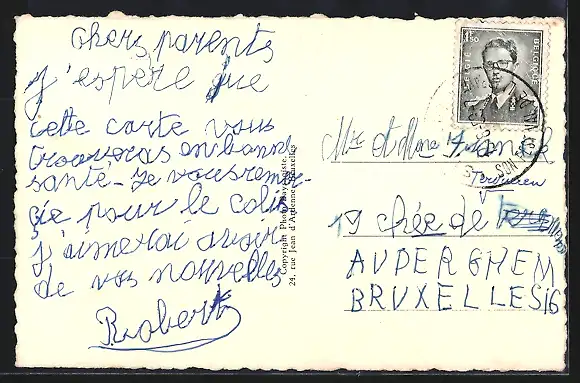 chers parents
j'espère que
cette carte vous
trouveras en bonne
santé - Je vous remer-
cie pour le colis
j'aimerai avoir
de vos nouvelles
Robert
Copyright Photo
24, rue Jean d'Ardenne Bruxelles
BELGIQUE
Mr et Mme Franck
Tervueren
19 chée de
AUDERGHEM
BRUXELLES 16